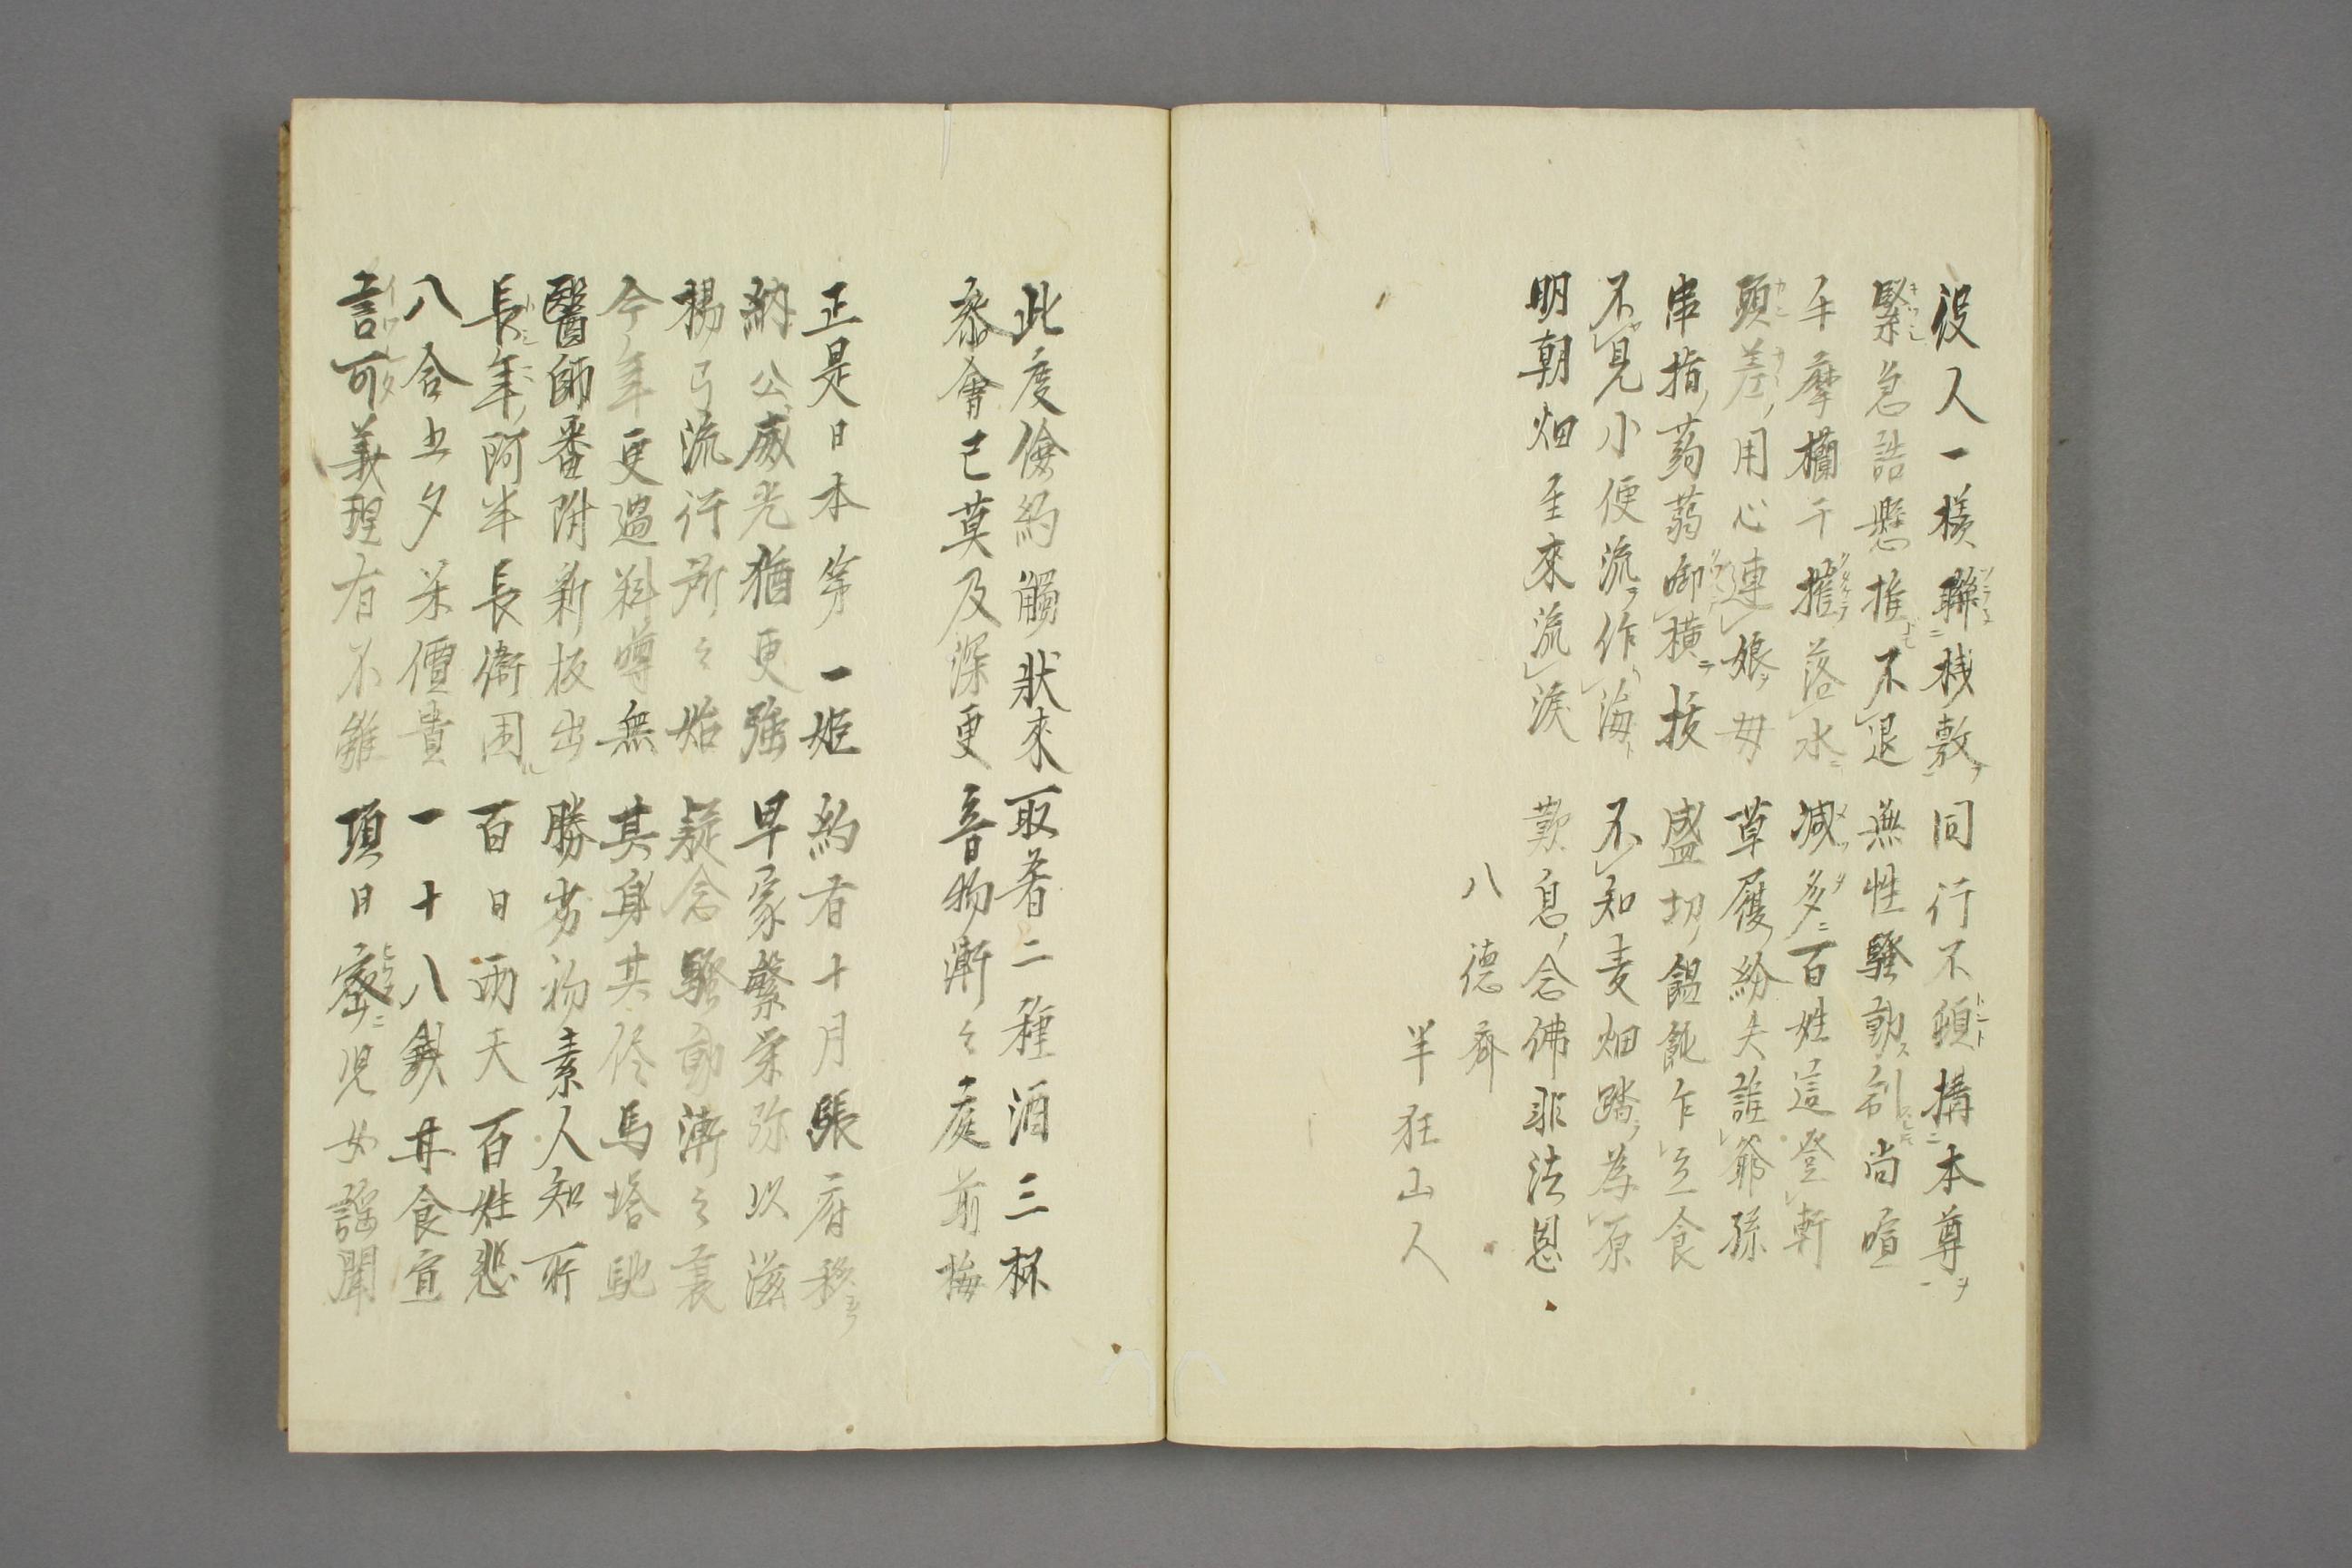 役人一様聯桟敷同行不頓搆本尊
緊急詰懸推不退無性騒動制尚喧
手摩欄干摧落水減多百姓這登軒
頭差用心連娘毎草履紛失誰爺孫
串指蒟蒻啣横抜盛切饂飩乍立食
不見小便流作海不知麦畑踏為原
明朝畑主來流涙歎息念佛非法恩
八徳齊
半狂山人
此度儉約觸状來取肴二種酒三杯
参會已莫及深更音物漸々庭前梅
正是日本第一姫約者十月張府移
納公威光猶更強早家繁栄弥以滋
楊弓流行所々始疑念騒動漸々衰
今年更過料噂無其身其侭馬塔馳
醫師番附新板出勝劣初素人知所
長年阿半長衛困百日雨天百姓悲
八合五夕米價貴一十八錢丼食宜
言可義理有不雖項日密児女謡聞